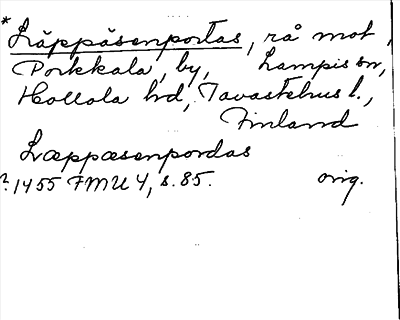 * Läppäsenportas, rå mot
Porkkala, by, Lampis sn,
Hollola hd, Tavastehus l.,
Finland
Læppæsenpordas
?1455 FMU 4, s. 85. orig.